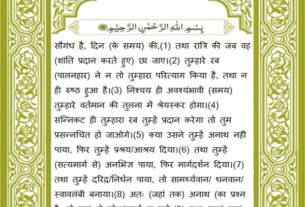 بِسْمِ اللهِ الرَّحْمٰنِ الرَّحِيْمِ
सौगंध है, दिन (के समय) की,(1) तथा रात्रि की जब वह
(शांति प्रदान करते हुए) छा जाए।(2) तुम्हारे रब
(पालनहार) ने न तो तुम्हारा परित्याग किया है, तथा न
ही रुष्ठ हुआ है।(3) निश्चय ही अवश्यंभावी (समय)
तुम्हारे वर्तमान की तुलना में श्रेयस्कर होगा।(4)
सन्निकट ही तुम्हारा रब तुम्हें प्रदान करेगा तो तुम
प्रसन्नचित हो जाओगे।(5) क्या उसने तुम्हें अनाथ नहीं
पाया, फिर तुम्हें प्रश्रय/आश्रय दिया।(6) तथा तुम्हें
(सत्यमार्ग से) अनभिज्ञ पाया, फिर मार्गदर्शन दिया।(7)
तथा तुम्हें दरिद्र/निर्धन पाया, तो सामर्थ्यवान/ धनवान/
स्वावलंबी बनाया।(8) अतः (जहां तक) अनाथ (का प्रश्न